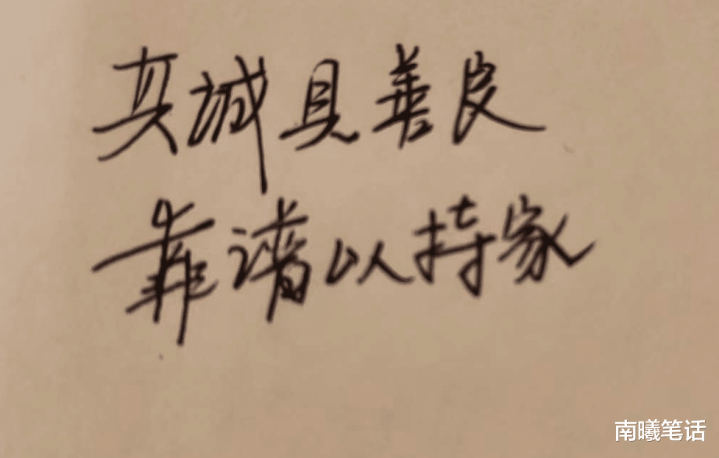 真诚且善良
靠谱以持家
南曦笔话